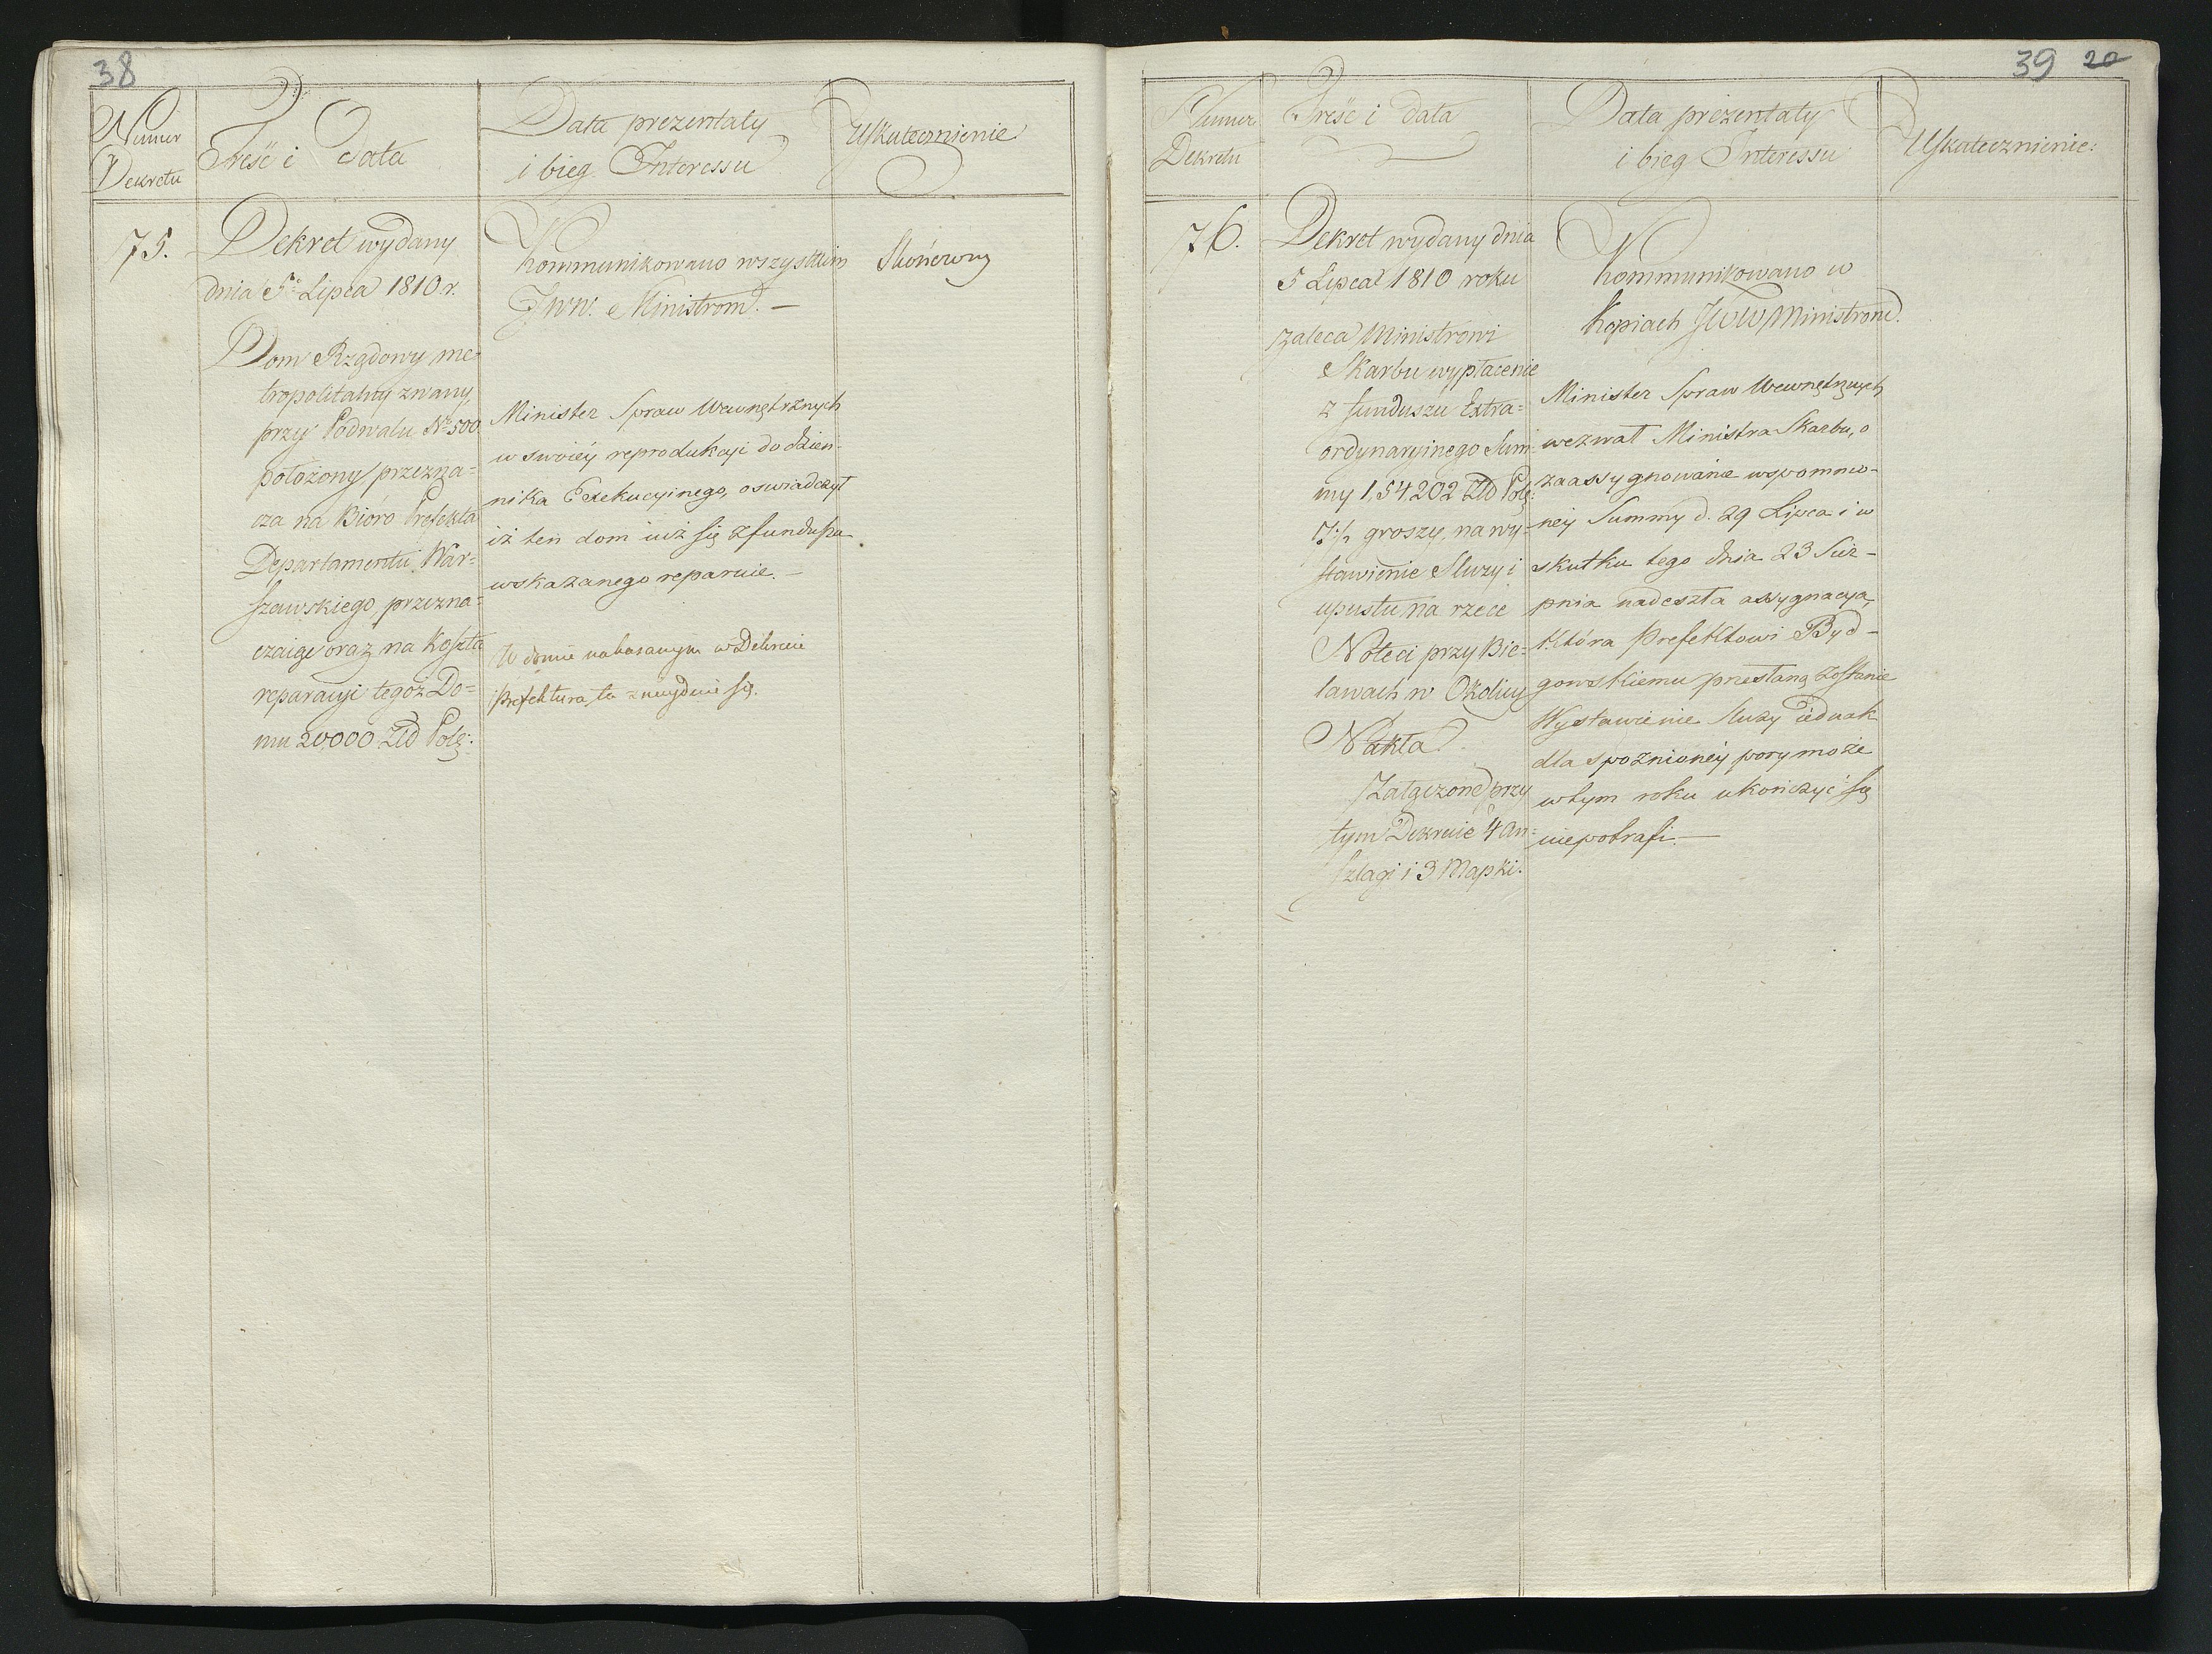 38
Numer
Dekretu
Treść i Data
Data prezentaty
i bieg Interessu
Uskutecznienie
75.
Dekret wydany
dnia 5º Lipca 1810 r.
Dom Rządowy me-
tropolitalny zwany,
przy Podwalu Nº 500
położony przezna=
cza na Bióro Prefekta
Departamentu War=
szawskiego, przezna=
czaiąc oraz na koszta
reparacyi tegoż Do=
mu 20,000 Zło Pols:
Kommunikowano wszystkim
JWW. Ministrom. —
Minister Spraw Wewnętrznych
w swoiéy reprodukcyi do dzien-
nika Exekucyinego, oswiadczył
iż ten dom iuż się z funduszu
wskazanego reparuie. —
W domie
w Dekrecie
Prefektura ta znayduie się.
Skończony
39 20
Numer
Dekretu
Treść i data
Data prezentaty
i bieg Interessu
Uskutecznienie:
76.
Dekret wydany dnia
5 Lipca 1810 roku
zaleca Ministrowi
Skarbu wypłacenie
z funduszu Extra=
ordynaryinego Sum=
my 1,54,202 Zło Pols:
7½ groszy, na wy-
stawienie Sluzy i
upustu na rzece
Noteci przy Bie=
lawach w Okolicy
Nakła.
Załączone przy
tym Dekrecie 4 An=
szlagi i 3 Mapki.
Kommunikowano w
kopiach JWW Ministrom.
Minister Spraw Wewnętrznych
wezwał Ministra Skarbu, o
zaassygnowanie wspomnio-
ney Summy d. 29 Lipca i w
skutku tego dnia 23 Sier-
pnia nadeszła assygnacya,
która Prefektowi Byd-
gowskiemu przesłaną zostanie
Wystawienie Sluzy iednak
dla spoznioney pory może
w tym roku ukończyć się
niepotrafi. —